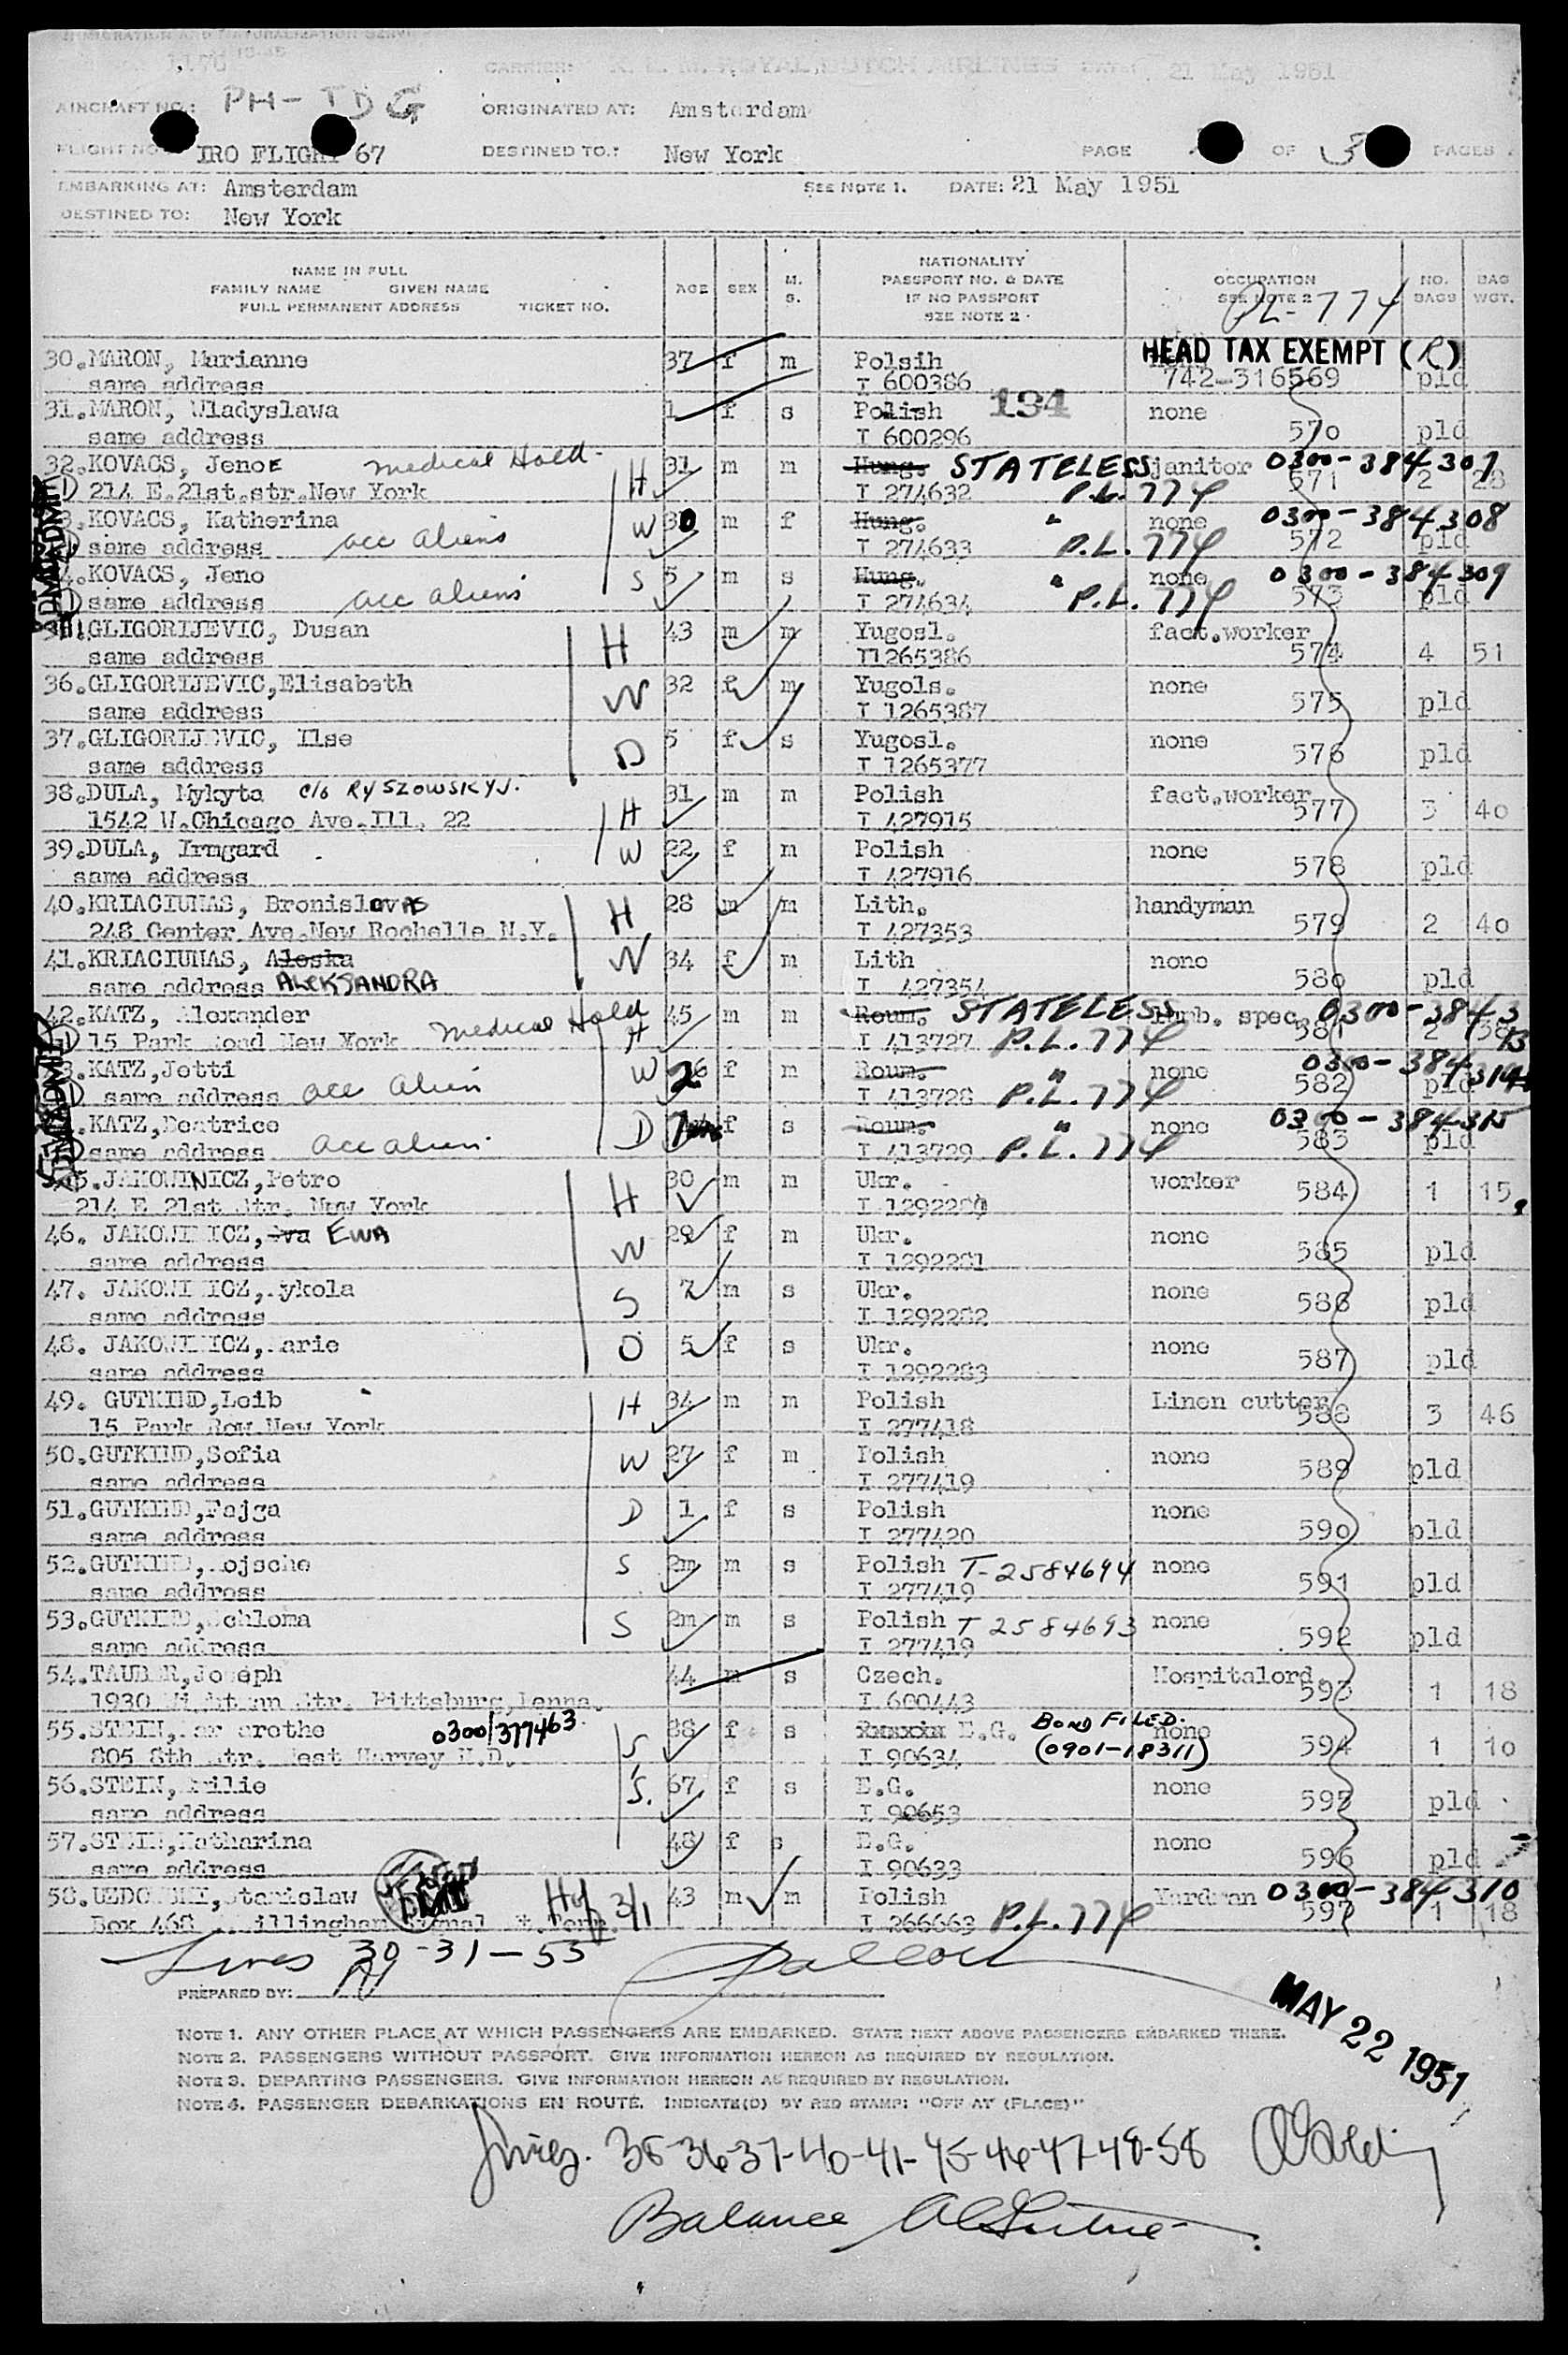 IMMIGRATION AND NATURALIZATION
CARRIER: K. L. M. ROYAL DUTCH AIRLINES DATE: 21 May 1951
AIRCRAFT NO.: PH-TDG ORIGINATED AT: Amsterdam
FLIGHT NO IRO FLIGHT 67 DESTINED TO.: New York PAGE OF 3 PAGES
EMBARKING AT: Amsterdam SEE NOTE 1. DATE: 21 May 1951
DESTINED TO: New York
NAME IN FULL
FAMILY NAME GIVEN NAME
FULL PERMANENT ADDRESS TICKET NO.
AGE SEX M. S.
NATIONALITY
PASSPORT NO. & DATE
IF NO PASSPORT
SEE NOTE 2
OCCUPATION
SEE NOTE 2
NO. BAGS
BAG WGT.
PL-774
HEAD TAX EXEMPT (R)
30.MARON, Marianne 37 f m Polsih
same address I 600386 742-316569 pld
31.MARON, Wladyslawa 1 f s Polish 194 none
same address I 600296 570 pld
32.KOVACS, JenoE medical Hold- H 31 m m Hung. STATELESS janitor 0300-384307
214 E.21st.str.New York I 274632 P.L. 774 571 2 28
KOVACS, Katherina W 30 m f Hung. " none 0300-384308
same address acc aliens I 274633 P.L. 774 572 pld
KOVACS, Jeno S 5 m s Hung. " none 0300-384309
same address acc aliens I 274634 P.L. 774 573 pld
GLIGORIJEVIC, Dusan H 43 m m Yugosl. fact.worker
same address 1265386 574 4 51
36.GLIGORIJEVIC,Elisabeth W 32 f m Yugols. none
same address I 1265387 575 pld
37.GLIGORIJEVIC, Ilse D 5 f s Yugosl. none
same address I 1265377 576 pld
38.DULA, Mykyta c/o RYSZOWSKYJ. 31 m m Polish fact.worker
1542 W.Chicago Ave.Ill. 22 H I 427915 577 3 40
39.DULA, Irmgard W 22 f m Polish none
same address I 427916 578 pld
40.KRIACIUNAS, BronislovAS H 28 m m Lith. handyman
248 Center Ave.New Rochelle N.Y. I 427353 579 2 40
41.KRIACIUNAS, Aleska W 34 f m Lith none
same address ALEKSANDRA I 427354 580 pld
42.KATZ, Alexander medical Hold 45 m m Roum. STATELESS spec. 0300-3843
15 Park Road New York H I 413727 P.L. 774 581 2 38 13
KATZ,Jetti W 26 f m Roum. " none 0300-384314
same address acc alien I 413728 P.L. 774 582 pld
KATZ,Beatrice D f s Roum. " none 0300-384315
same address acc alien I 413729 P.L. 774 583 pld
JAKOWINICZ,Petro H 30 m m Ukr. worker
214 E 21st Str. New York 584 1 15
46. JAKOWINICZ, Eva EWA W 29 f m Ukr. none
same address I 1292281 585 pld
47. JAKOWINICZ, Mykola S 7 m s Ukr. none
same address I 1292282 586 pld
48. JAKOWINICZ, Marie D 5 f s Ukr. none
same address I 1292283 587 pld
49. GUTKIND,Leib H 34 m m Polish Linen cutter
15 Park Row New York I 277418 588 3 46
50.GUTKIND,Sofia W 27 f m Polish none
same address I 277419 589 pld
51.GUTKIND,Fajga D 1 f s Polish none
same address I 277420 590 pld
52.GUTKIND,Mojsche S 2m m s Polish T-2584694 none
same address I 277419 591 pld
53.GUTKIND,Schloma S 2m m s Polish T 2584693 none
same address I 277419 592 pld
54.TAUBER,Joseph 44 m s Czech. Hospitalord.
1930 Str. Pittsburg,Penna. I 600443 593 1 18
55.STEIN,Margrethe 0300/377463 S 38 f s E.G. BOND FILED. none
805 8th Str. West Harvey N.D. I 90634 (0901-18311) 594 1 10
56.STEIN,Emilie S. 67 f s E.G. none
same address I 90653 595 pld
57.STEIN,Katharina 48 f s E.G. none
same address I 90633 596 pld
58. Stanislaw 43 m m Polish Yardman 0300-384310
Box 468 I 266663 P.L. 774 597 1 18
Lines 30-31-53
PREPARED BY:
NOTE 1. ANY OTHER PLACE AT WHICH PASSENGERS ARE EMBARKED. STATE NEXT ABOVE PASSENGERS EMBARKED THERE.
NOTE 2. PASSENGERS WITHOUT PASSPORT. GIVE INFORMATION HEREON AS REQUIRED BY REGULATION.
NOTE 3. DEPARTING PASSENGERS. GIVE INFORMATION HEREON AS REQUIRED BY REGULATION.
NOTE 4. PASSENGER DEBARKATIONS EN ROUTE. INDICATE(D) BY RED STAMP: "OFF AT (PLACE)"
MAY 22 1951
Lines. 35-36-37-40-41-45-46-47-48-58
Balance